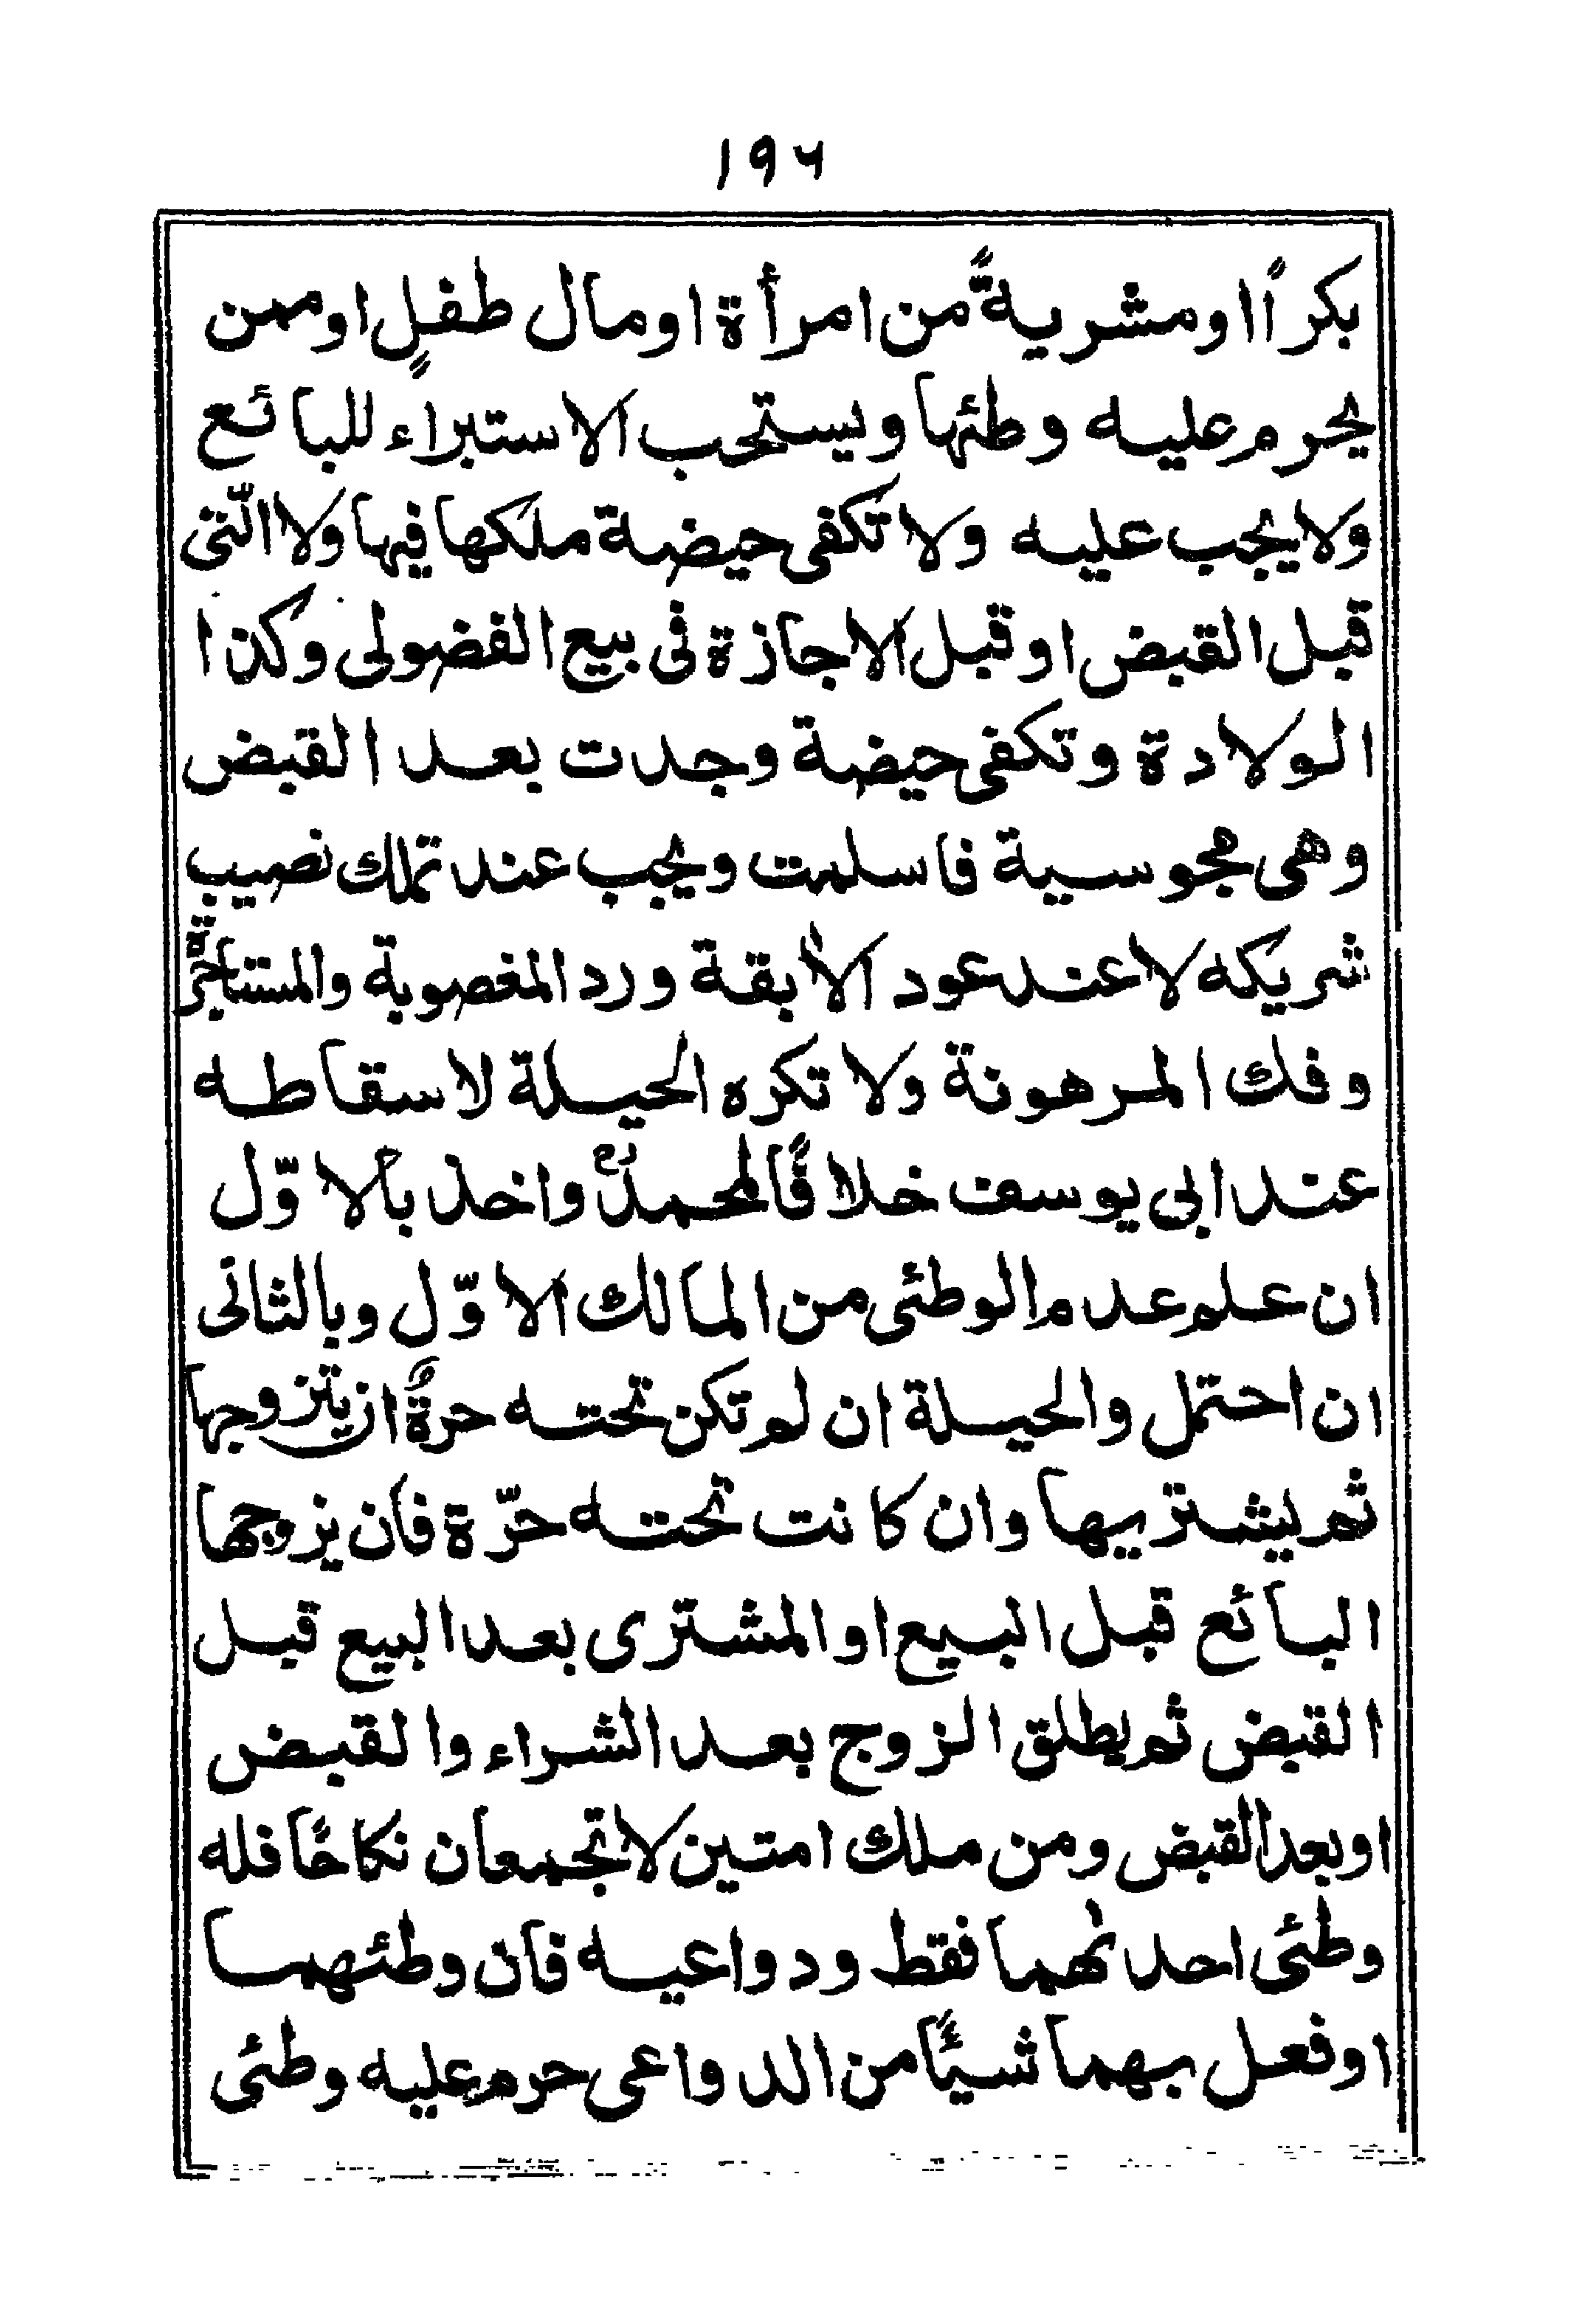 ١٩٦
بكرًا او مشريةً من امرأة او مال طفلٍ او ممن
يحرم عليه وطئها ويستحب الاستبراء للبائع
ولا يجب عليه ولا تكفى حيضة ملكها فيها ولا الّتى
قبل القبض او قبل الاجازة فى بيع الفضولى وكذا
الولادة وتكفى حيضة وجدت بعد القبض
وهى مجوسية فاسلمت ويجب عند تملك نصيب
شريكه لا عند عود الأبقة ورد المغصوبة والمستاجرة
وفك المرهونة ولا تكره الحيلة لاسقاطه
عند ابى يوسف خلافًا لمحمدؒ واخذ بالاوّل
ان علم عدم الوطئى من المالك الاوّل وبالثانى
ان احتمل والحيلة ان لم تكن تحته حرةٌ ان يتزوجها
ثم يشتريها وان كانت تحته حرّة فأن يزوجها
البائع قبل البيع او المشترى بعد البيع قبل
القبض ثم يطلق الزوج بعد الشراء والقبض
او بعد القبض ومن ملك امتين لا تجمعان نكاحًا فله
وطئى احدٰهما فقط ودواعيه فأن وطئهما
او فعل بهما شيئًا من الدواعى حرم عليه وطئى